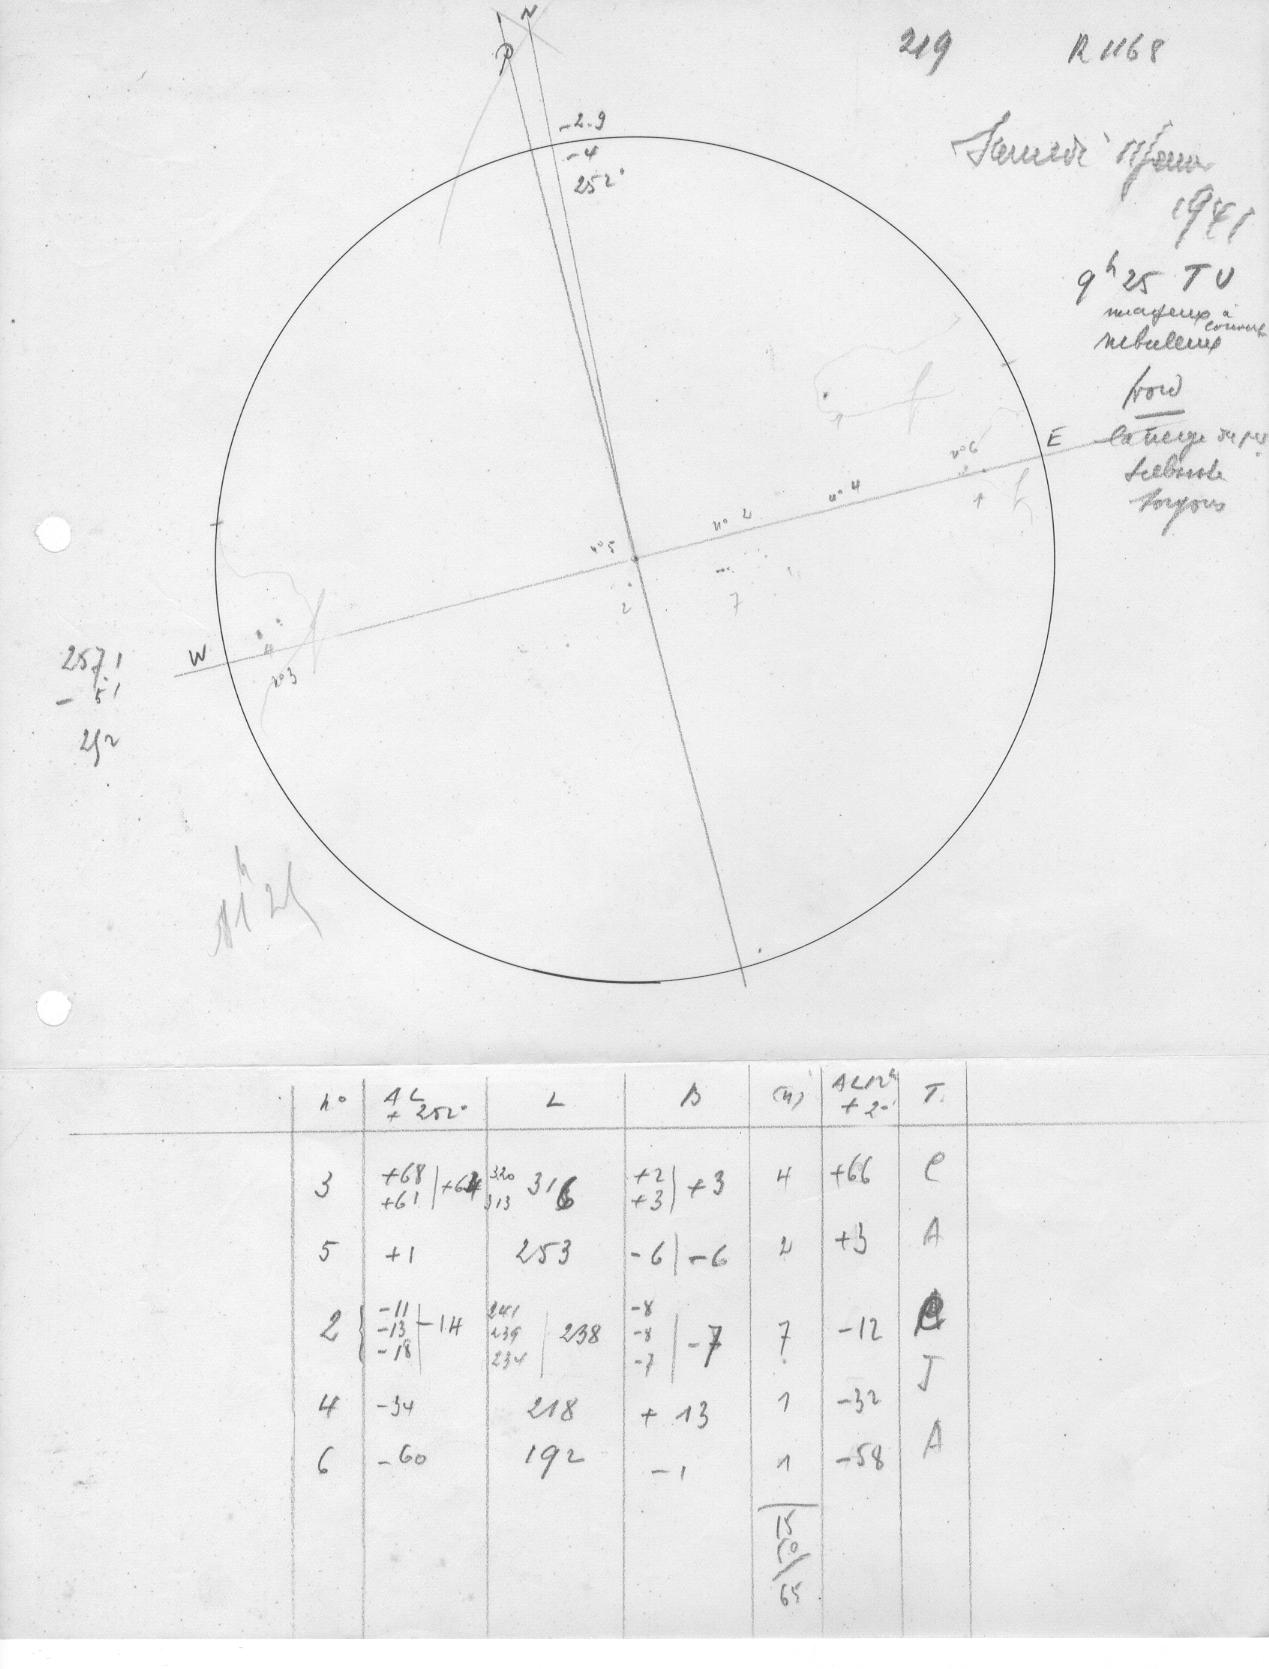 219 R 1168
Samedi 11 Janv
1941
9h 25 TU
nuageux à
couvert
nébuleux
froid
la neige
toujours
N
P
-2.9
-4
252°
E
W
n° 6
1
n° 4
n° 2
7
n° 5
2
1
4
n° 3
257.1
- 5.1
252
11h 25
n° AL + 252° L B (n) AL 12h + 2° T.
3 +68 +61 | +64 320 313 316 +2 +3 | +3 4 +66 C
5 +1 253 -6 | -6 2 +3 A
2 { -11 -13 -18 | -14 241 239 234 | 238 -8 -8 -7 | -7 7 -12 C
4 -34 218 + 13 1 -32 J
6 -60 192 -1 1 -58 A
15
50
65